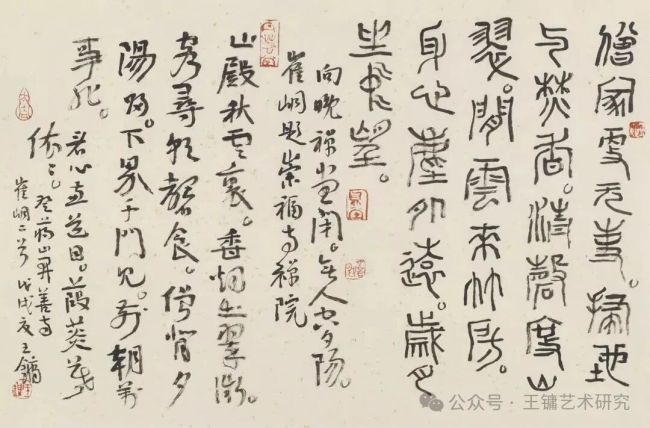 僧家更无事。掃地
与焚香。清磬度山
翠。閒雲来竹房。
身心塵外遠。歲月
坐望。
向晚禅堂閉。无人空夕陽。
崔峒题崇福寺禅院
山殿秋雲裏。香烟出翠微。
客尋朝磬食。僧背夕
陽歸。下界千門見。前朝萬
事非。看心送目。葭菼暮
依依。登蒋山開善寺
崔峒二首 戊戌夏王鏞
公众号·王镛艺术研究